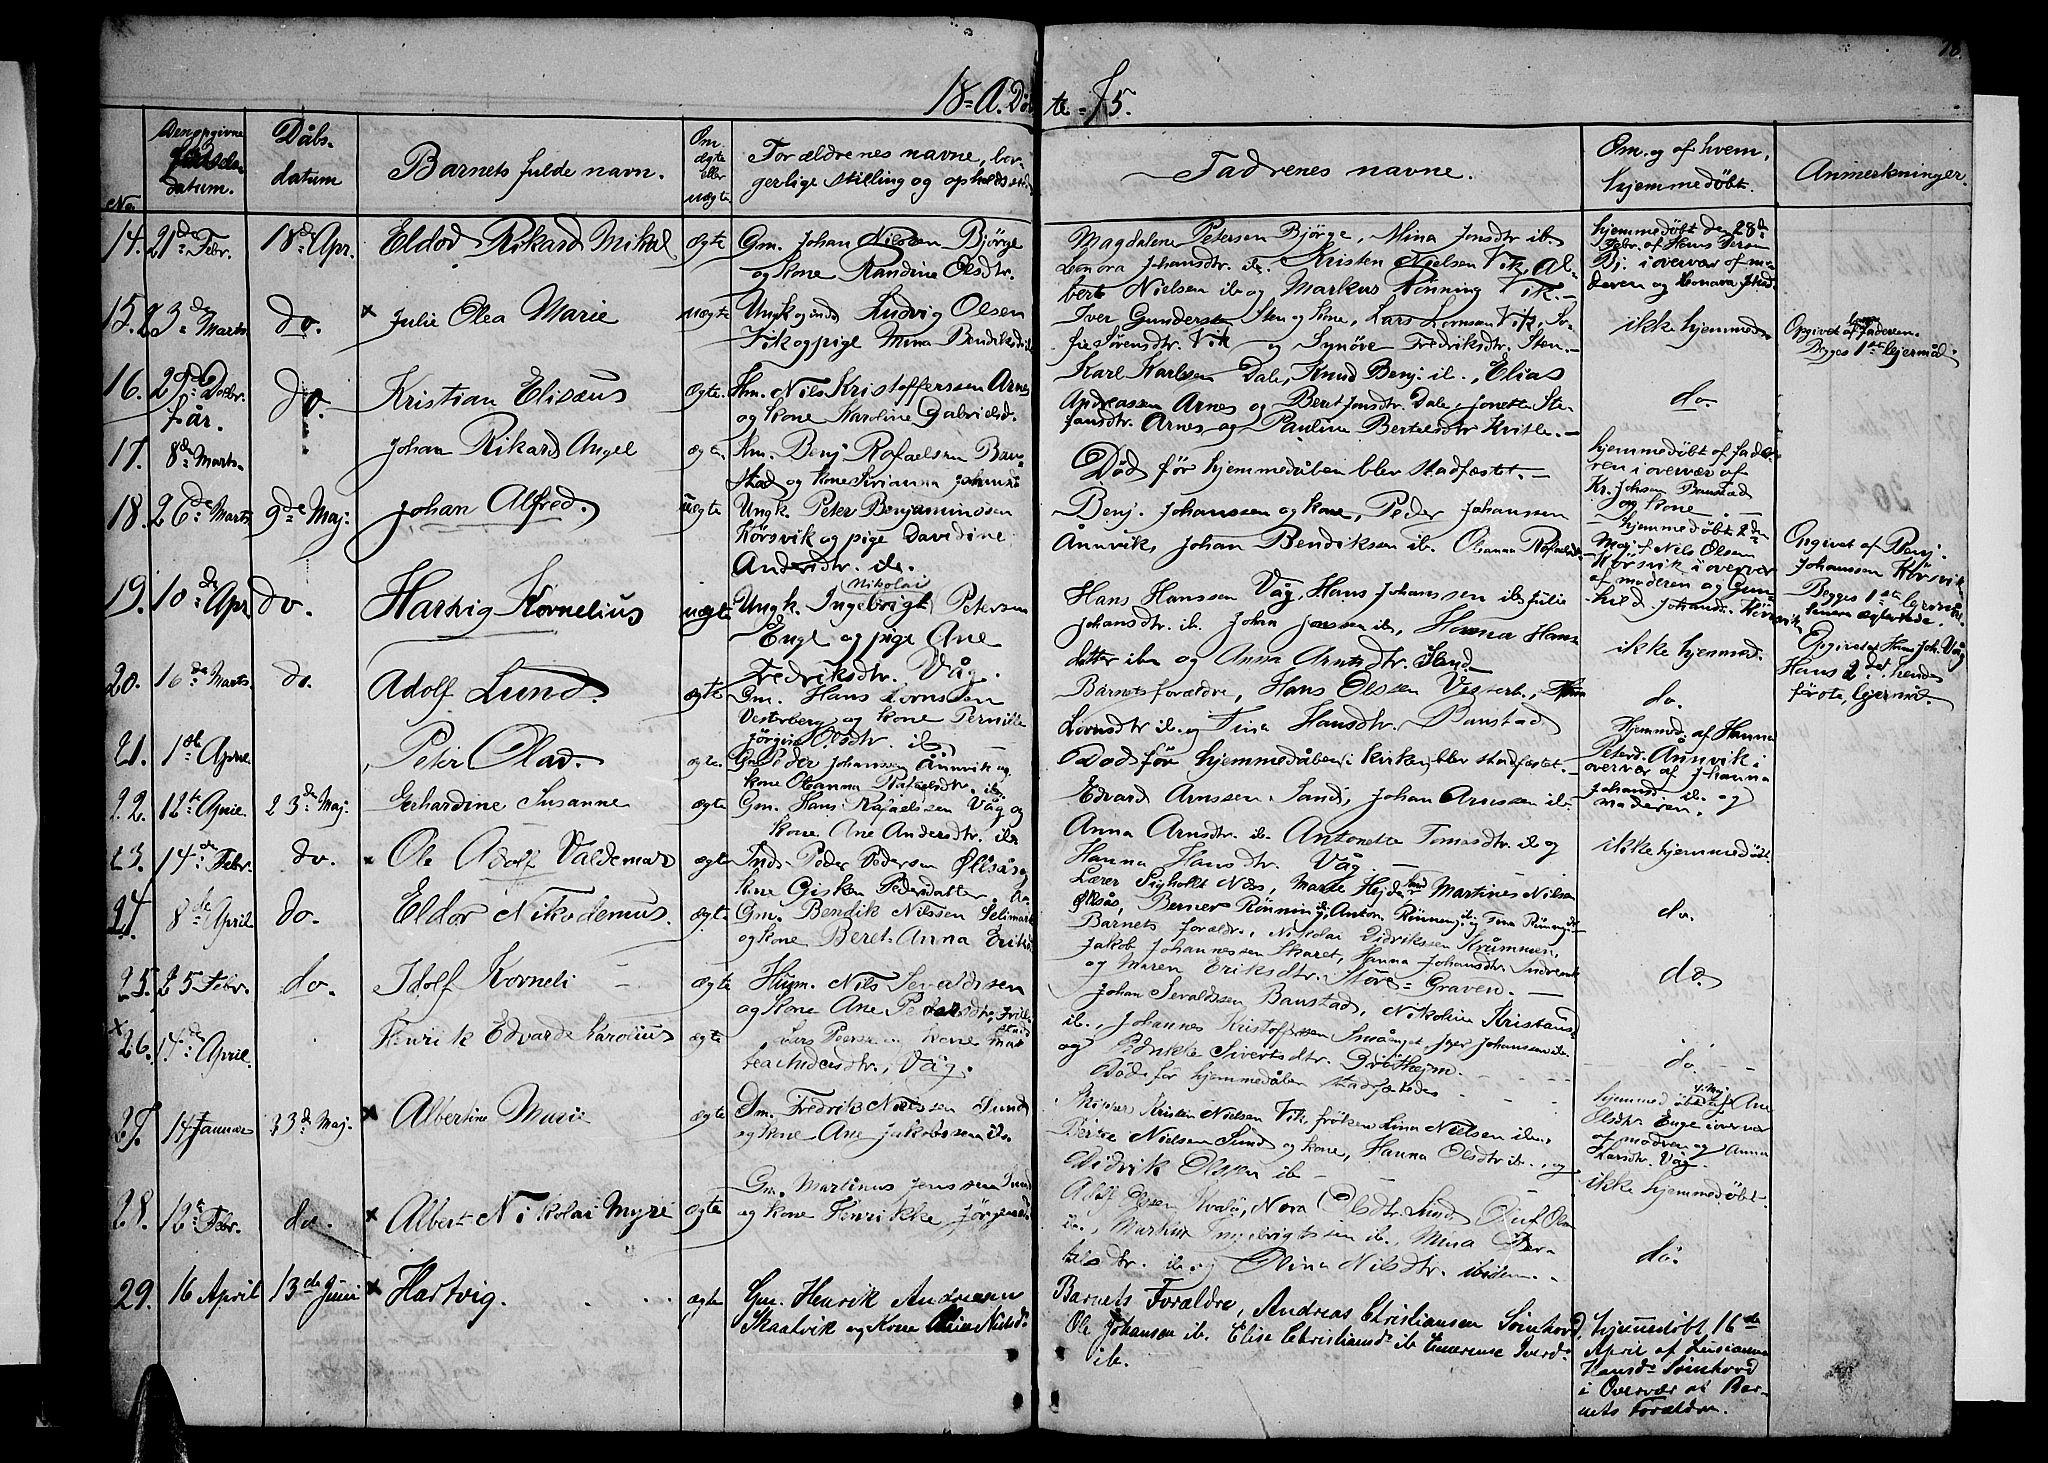 18=A. Døb
te = 75.
No
Den opgivne
datum.
Dåbs-
datum
Barnets fulde navn.
Om
ægte
eller
uægte
Forældrenes navne, bor-
gerlige stilling og opholdssted
Fadrenes navne.
Om, og af hvem,
hjemmedøbt.
Anmerkninger.
14. 21de Febr. 18de Apr. Eldod Rikard Mikal ægte Gm. Johan Nilssen Bjørge
og kone Randine Olsdtr.
Magdalene Petersen Bjørge, Mina Jonsdtr ib.
Leonora Johansdtr. ib. Kristen Nielsen Vik, Al-
bert Nielsen ib og Markus Rønning Vik. -
hjemmedøbt den 28de
Febr. af Hans Iversen
Bj. i overvær af mo-
deren og Leonora Johsd.
15. 23de Marts do. x Julie Olea Marie uægte Ungk og inds Ludvig Olsen
Vik og pige Mina Bendiksdtr ib
Iver Gundersen Sten og kone, Lars Larnsen Vik, So-
fie Sørensdtr. Vik og Synøve Fredriksdtr. Sten. -
ikke hjemmedø
Opgivet af faderen.
Begges 1ste lejermål.
16. 29de Decbr.
f. år. do. Kristian Elisæus ægte. Hm. Nils Kristofferssen Arnes
og kone Karoline Gabrielsd.
Karl Karlsen Dale, Knud Benj. ib., Elias
Andreassen Arnes og Beret Jonsdtr. Dale, Jonette Ste-
fansdtr. Arnes og Pauline Bertelsdtr Kvitle. -
do.
17. 8de Marts Johan Rikard Angel ægte. Hm. Benj Rafaelsen Ban-
stad og kone Sirianna Johansd
Død før hjemmedåben blev stadfæstet. -
hjemmedøbt af fade-
ren i overvær af
Kr. Johsen Banstad
og kone.
18. 26de Marts 9de Maj. Johan Alfred. uægte Ungk. Peter Benjaminsen
Kørsvik og pige Davidine
Andersdtr. ib.
Benj. Johanssen og kone, Peder Johansen
Ånnvik, Johan Bendiksen ib. Oleanna Rafaelsdtr
hjemmedøbt 2den
Maj af Nils Olsen
Kørsvik i overvær
af moderen og Gun-
hild Johansd. Kørsvik
Opgivet af Benj.
Johanssen Kørsvik
Begges 1ste lejermål.
19. 10de Apr do. Hartvig Kornelius uægte Ungk. Ingebrigt Nikolai Petersen
Enge og pige Ane
Fredriksdtr. Våg.
Hans Hanssen Våg, Hans Johanssen ib, Julie
Johansdtr. ib. Johan Jonssen ib, Hanna Hans
datter ib og Anna Arntsdtr. Sand.
ikke hjemmed.
Opgivet af Hans Joh. Våg
Hans 2det, hendes
første, lejermål.
20. 16de Marts do. Adolf Lund ægte Gm. Hans Lornssen
Vesterberg og kone Pernille
Jørgine Olsdtr. ib.
Barnets forældre, Hans Olssen Vesterb.,
Lornsdtr ib. og Tina Hansdtr. Banstad
do.
21. 1ste April Peter Olav. ægte. Gm Peder Johansen Ånnvik og
kone Oleanna Rafaelsdtr. ib.
Død før hjemmedåben i kirken blev stadfæstet. -
Hjemmed. af Hanna
Petersd. Ånnvik i
overvær af Johanna
Johansd. ib. og
moderen.
22. 12te April 23de Maj. Gerhardine Susanne ægte Gm. Hans Rafaelssen Våg og
kone Ane Andersdtr. ib
Edvard Arnssen Sand, Johan Arnssen ib.
Anna Arnsdtr. ib. Antonette Tomasdtr. ib og
Hanna Hansdtr. Våg. -
ikke hjemmedøbt.
23. 14de Febr. do. x Ole Adolf Valdemar ægte Inds. Peder Pedersen Øksås og
kone Gisken Pedersdatter
Lærer Sigholt Næs, Martines Nilsen
Øksås, Berner Rønning ib, Anton Rønning ib og Tina Rønning ib
do.
24. 8de April do. Eldor Nikodemus. ægte. Gm. Bendik Nilssen Selimark
og kone Beret-Anna Eriksd
Barnets forældre, Nikolai Didrikssen Krummen,
Jakob Johannessen Skaret, Hanna Johansdtr. Indremark
og Maren Eriksdtr. Støre-Graven. -
do.
25. 25 Febr. do. Idolf Korneli - ægte Husm. Nils Sevaldssen
og kone Ane Pedersdtr,
Johan Sevaldssen Banstad, Nikoline Kristians
ib., Johannes Kristoffersen Småenget, Iver Johansen ib.
og Didrikke Sivertsdtr. Brøthejm.
do.
x 26. 14de April Henrik Edvard Karolius ægte Lars Peersen kone Mar
tea Andersdtr., Våg.
Død før hjemmedåben stadfæstedes
hjemmedøbt af Ane
Olsdtr Enge i overvær
af moderen og Anna
Larsdtr. Våg.
27. 14 Januar 23de Maj. x Albertine Marie ægte Gm. Fredrik Nielssen Sund
og kone Ane Jakobssen ib.
Skipper Kristen Nielsen Vik, frøken Lina Nielsen ib,
Berte Nielsen Sund og kone, Hanna Olsdtr ib., og
Didrik Olssen ib - - -
ikke hjemmedøbt.
28. 12te Febr. do. x Albert Nikolai Myre ægte Gm. Martinus Jenssen Sund
og kone Henrikke Jørgensd
Adolf Olssen Hvalø, Nora Olsdtr. Sund, Oluf Olsen
ib., Markus Ingebrigtssen ib., Mina Ber
telsdtr. ib og Olina Nilsdtr. ibidem. -
do.
29. 16 April 13de Juni x Hartvig. ægte Gm. Henrik Andresen
Skaatvik og Kone Nielsd.
Barnets Forældre, Andreas Christiansen Sørnhovd,
Ole Johansen ib. Elise Christiansd. ib Emerense Iversd.
ib.
hjemmedøbt, 16de
April af Lusianna
Hansd. Sørnhovd
i Overvær af Bar-
nets Forældre.